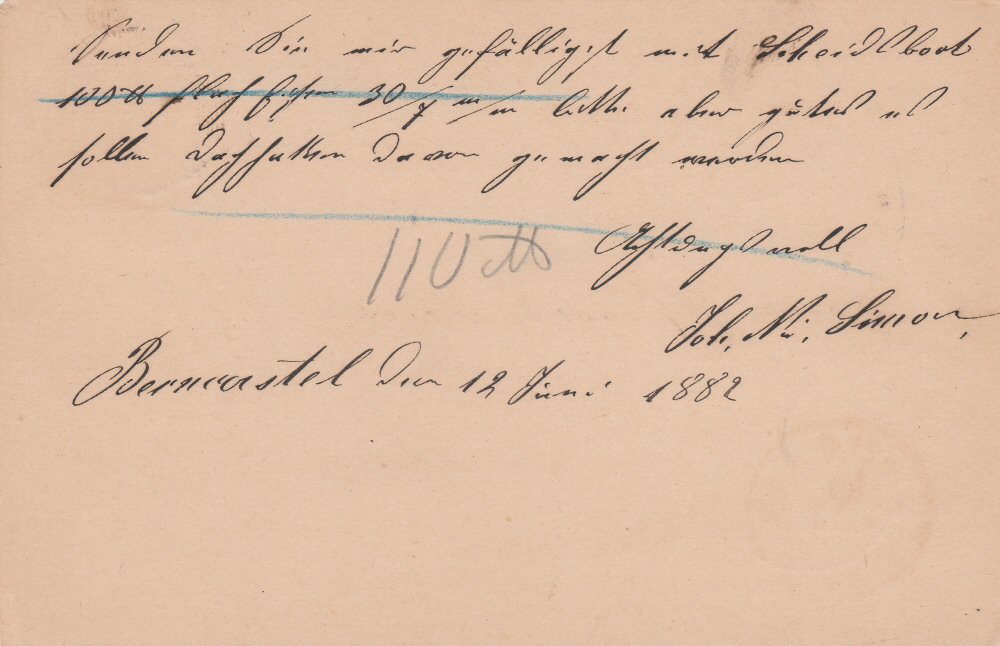 Senden Sie mir gefälligst mit Scheids boot
100 ℔ flach Eisen 30/7 m/m bitte aber gutes es
sollen Dachhaken davon gemacht werden
Achtungsvoll
110 ℔
Joh. Ni. Simon,
Berncastel den 12 Juni 1882